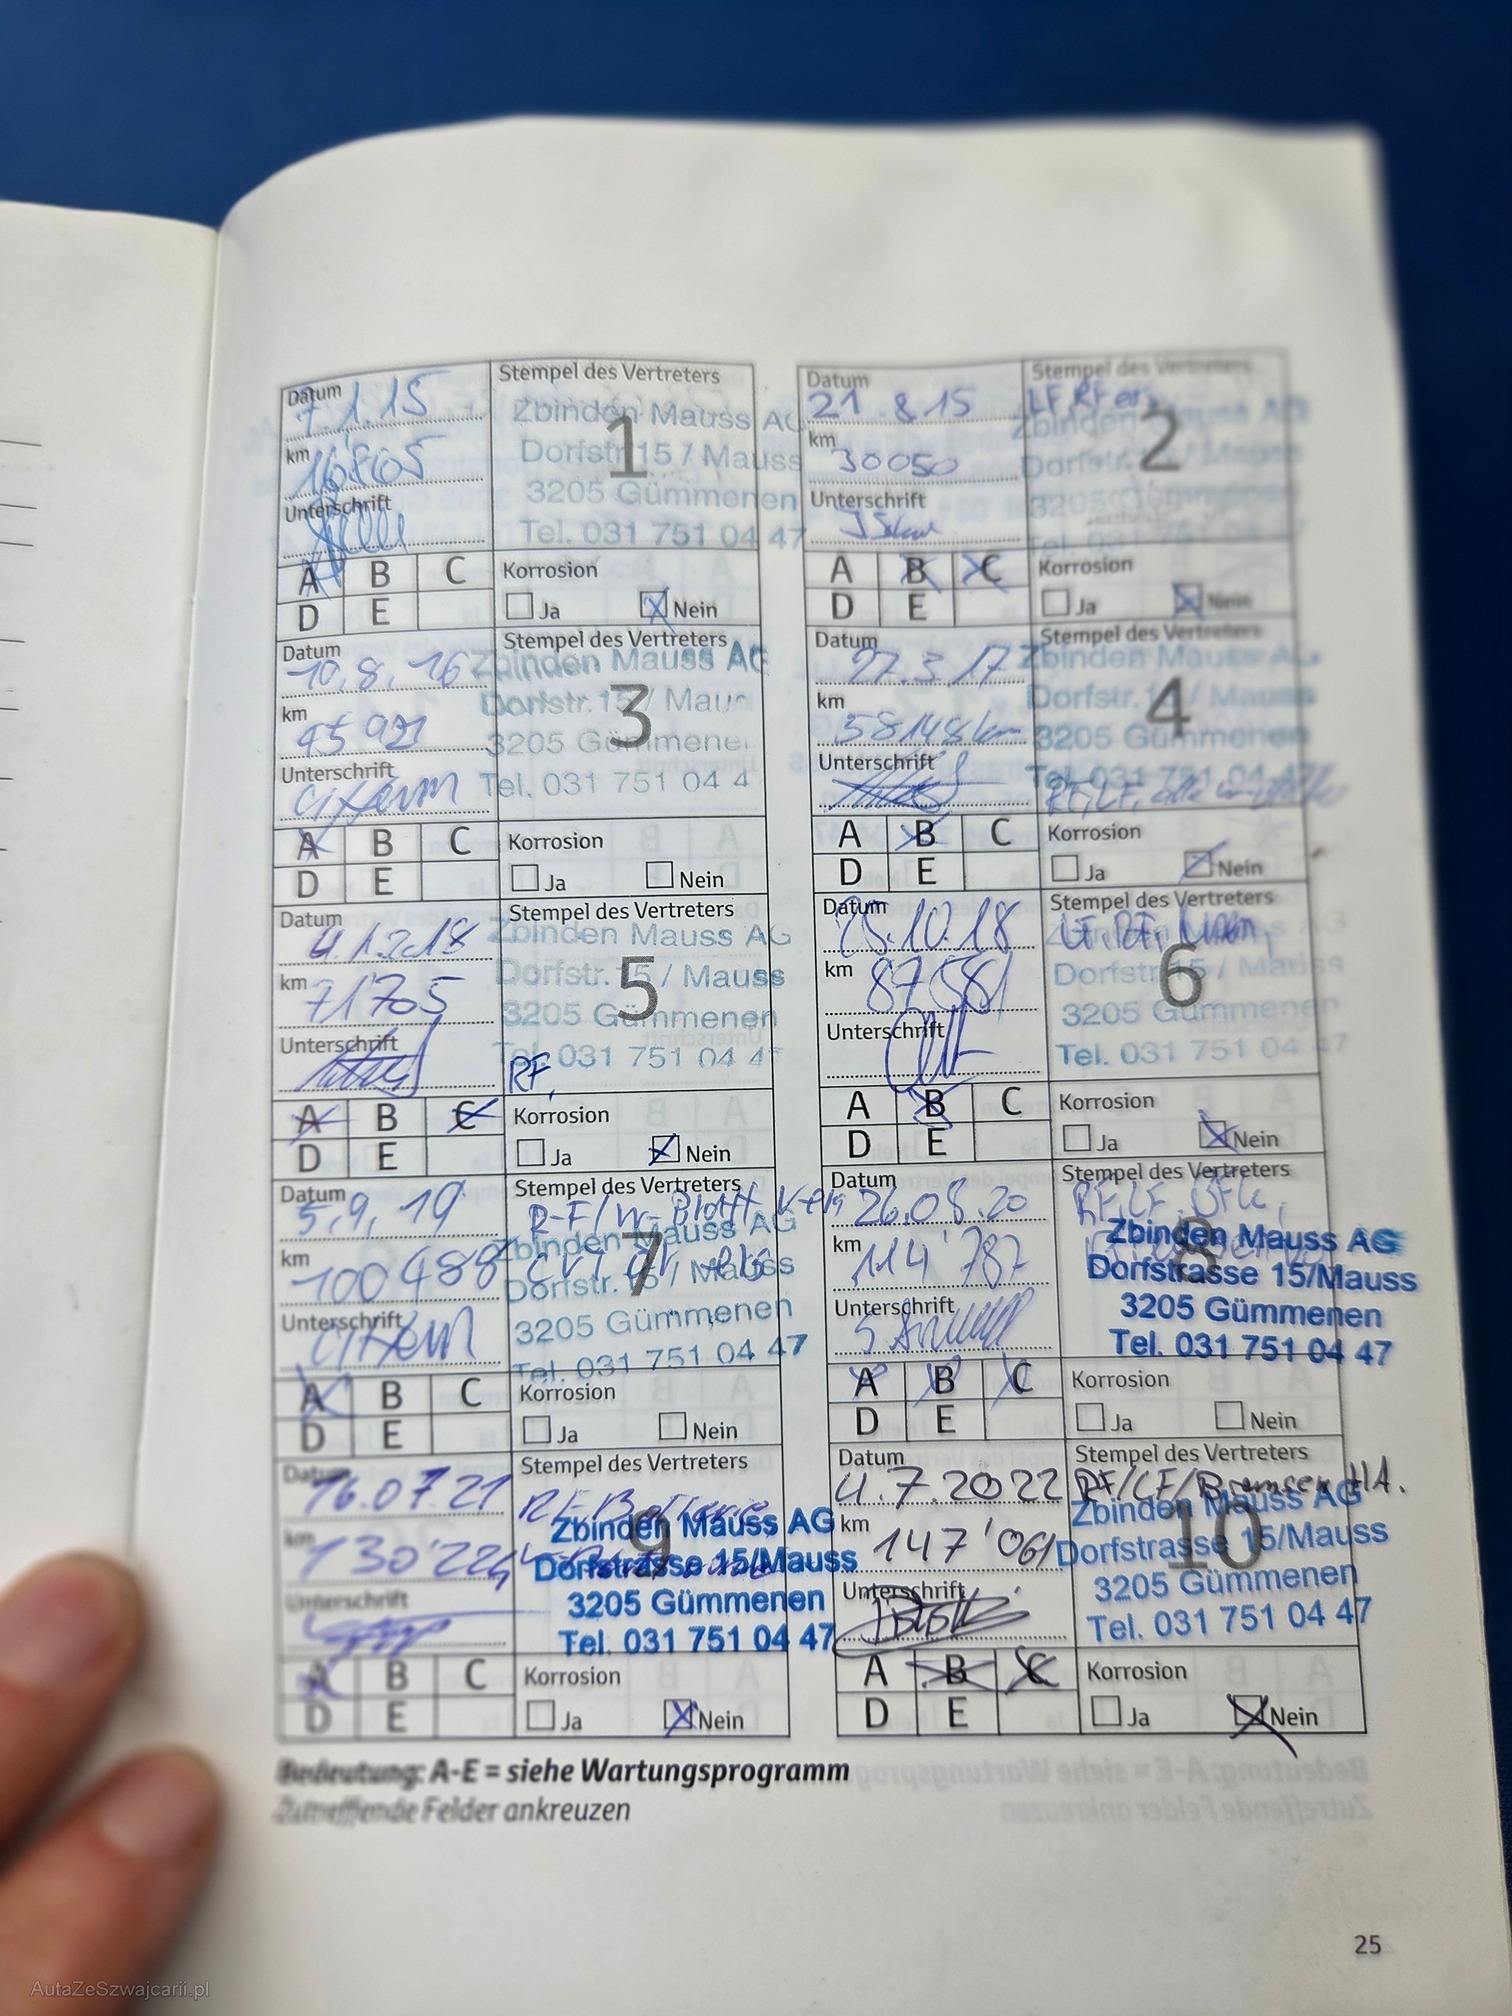 Datum
7.1.15
km
Unterschrift
A B C
D E
Stempel des Vertreters
1
Zbinden Mauss AG
Dorfstr. 15 / Mauss
3205 Gümmenen
Tel. 031 751 04 47
Korrosion
Ja Nein
Datum
21.8.15
km
30050
Unterschrift
A B C
D E
Stempel des Vertreters
LF, RF
2
Zbinden Mauss AG
Dorfstr. 15 / Mauss
3205 Gümmenen
Tel. 031 751 04 47
Korrosion
Ja Nein
Datum
10.8.16
km
45 921
Unterschrift
A B C
D E
Stempel des Vertreters
3
Zbinden Mauss AG
Dorfstr. 15 / Mau
3205 Gümmene
Tel. 031 751 04 4
Korrosion
Ja Nein
Datum
27.3.17
km
58148 km
Unterschrift
A B C
D E
Stempel des Vertreters
4
Zbinden Mauss AG
Dorfstr. 15 / Mauss
3205 Gümmenen
Tel. 031 751 04 47
RF, LF,
Korrosion
Ja Nein
Datum
4.1.2018
km
71705
Unterschrift
A B C
D E
Stempel des Vertreters
5
Zbinden Mauss AG
Dorfstr. 15 / Mauss
3205 Gümmenen
Tel. 031 751 04 47
RF,
Korrosion
Ja Nein
Datum
25.10.18
km
87581
Unterschrift
A B C
D E
Stempel des Vertreters
LF, RF,
6
Dorfstr. 15 / Mauss
3205 Gümmenen
Tel. 031 751 04 47
Korrosion
Ja Nein
Datum
5.9.19
km
100488
Unterschrift
A B C
D E
Stempel des Vertreters
7
Zbinden Mauss AG
Dorfstr. 15 / Mauss
3205 Gümmenen
Tel. 031 751 04 47
Korrosion
Ja Nein
Datum
26.08.20
km
114'787
Unterschrift
A B C
D E
Stempel des Vertreters
RF, LF,
8
Zbinden Mauss AG
Dorfstrasse 15/Mauss
3205 Gümmenen
Tel. 031 751 04 47
Korrosion
Ja Nein
Datum
16.07.21
km
130'224
Unterschrift
A B C
D E
Stempel des Vertreters
RF Batterie
9
Zbinden Mauss AG
Dorfstrasse 15/Mauss
3205 Gümmenen
Tel. 031 751 04 47
Korrosion
Ja Nein
Datum
4.7.2022
km
147'061
Unterschrift
A B C
D E
Stempel des Vertreters
RF/LF/Bremsen HA.
10
Zbinden Mauss AG
Dorfstrasse 15/Mauss
3205 Gümmenen
Tel. 031 751 04 47
Korrosion
Ja Nein
Bedeutung: A-E = siehe Wartungsprogramm
Zutreffende Felder ankreuzen
25
AutaZeSzwajcarii.pl